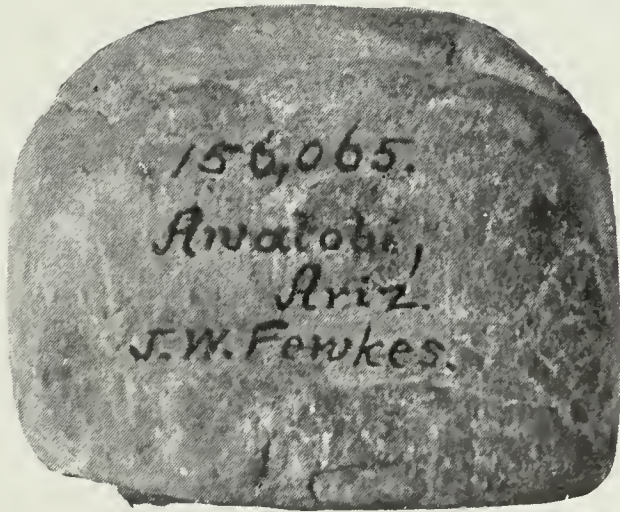 156,065.
Awatobi,
Ariz.
J.W. Fewkes.